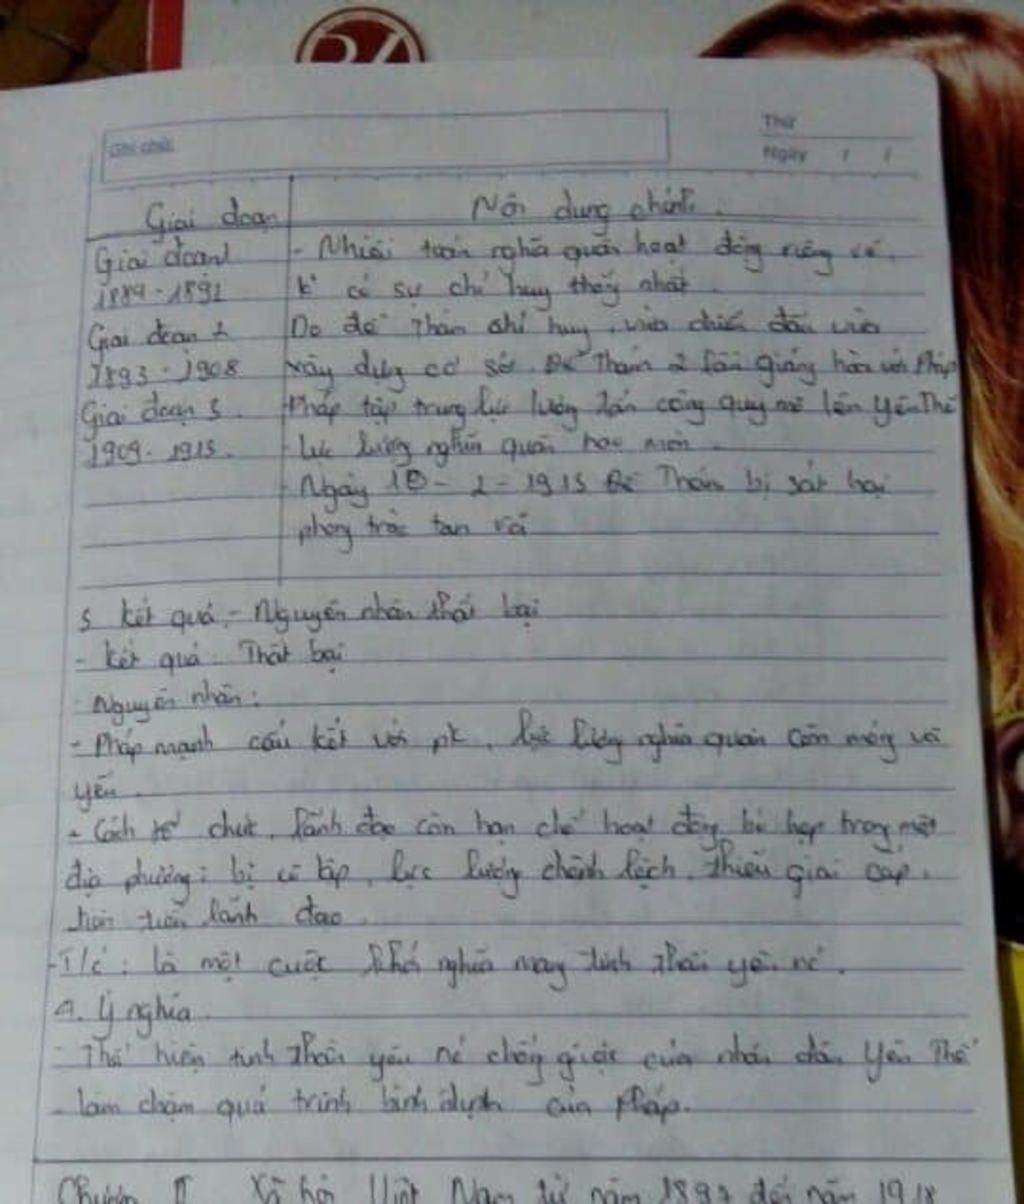 Ghi chú:
Thứ
Ngày / /
Giai đoạn Nội dung chính.
Giai đoạn 1 - Nhiều toán nghĩa quân hoạt động riêng rẽ,
1884-1892 k có sự chỉ huy thống nhất.
Giai đoạn 2 Do đề Thám chỉ huy, vừa chiến đấu vừa
1893-1908 xây dựng cơ sở. Đề Thám 2 lần giảng hòa với Pháp
Giai đoạn 3. - Pháp tập trung lực lượng tấn công quy mô lên Yên Thế
1909-1913. - lực lượng nghĩa quân hao mòn.
- Ngày 10-2-1913 Đề Thám bị sát hại
phong trào tan rã
3 kết quả, - Nguyên nhân thất bại
- kết quả: Thất bại
- Nguyên nhân:
- Pháp mạnh cấu kết với pk, lực lượng nghĩa quân còn mỏng và
yếu.
- Cách tổ chức, lãnh đạo còn hạn chế hoạt động bó hẹp trong một
địa phương: bị cô lập, lực lượng chênh lệch, thiếu giai cấp
tiên tiến lãnh đạo.
- T/c: là một cuộc khởi nghĩa mang tính thần yêu nc.
4. Ý nghĩa.
- Thể hiện tinh thần yêu nc chống giặc của nhân dân Yên Thế
- làm chậm quá trình bình định của Pháp.
Chương II Xã hội Việt Nam từ năm 1893 đến năm 1918